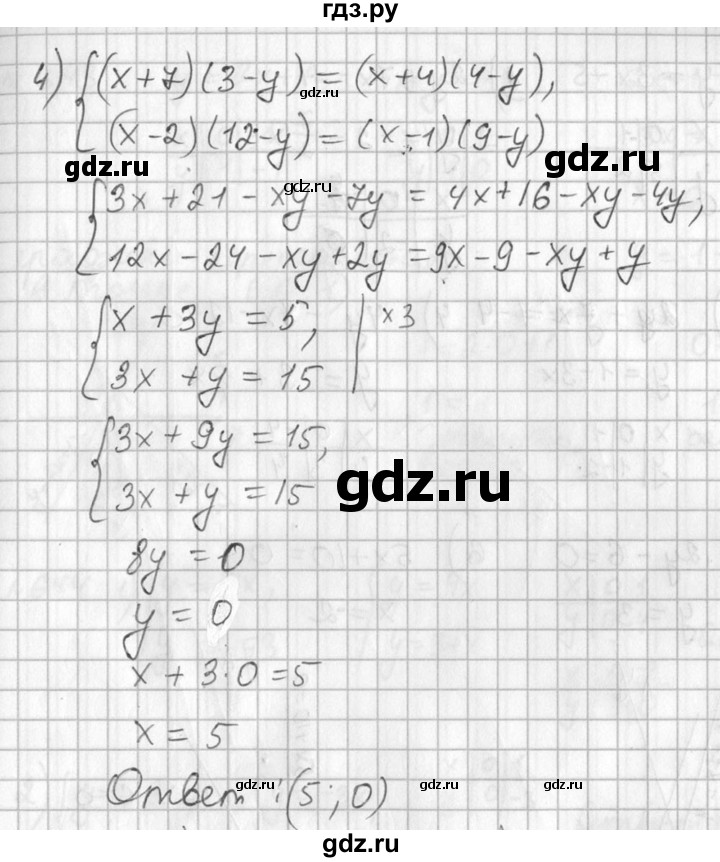 гдз.ру
4) { (x+7)(3-y) = (x+4)(4-y),
gdz.ru
(x-2)(12-y) = (x-1)(9-y)
gdz.ru gdz.ru
{ 3x+21-xy-7y = 4x+16-xy-4y,
gdz.ru
12x-24-xy+2y = 9x-9-xy+y
{ x+3y = 5, | x3
3x+y = 15
{ 3x+9y = 15,
3x+y = 15
gdz.ru
8y = 0
y = 0
x+3·0 = 5
x = 5
Ответ: (5; 0)
gdz.ru gdz.ru gdz.ru
gdz.ru